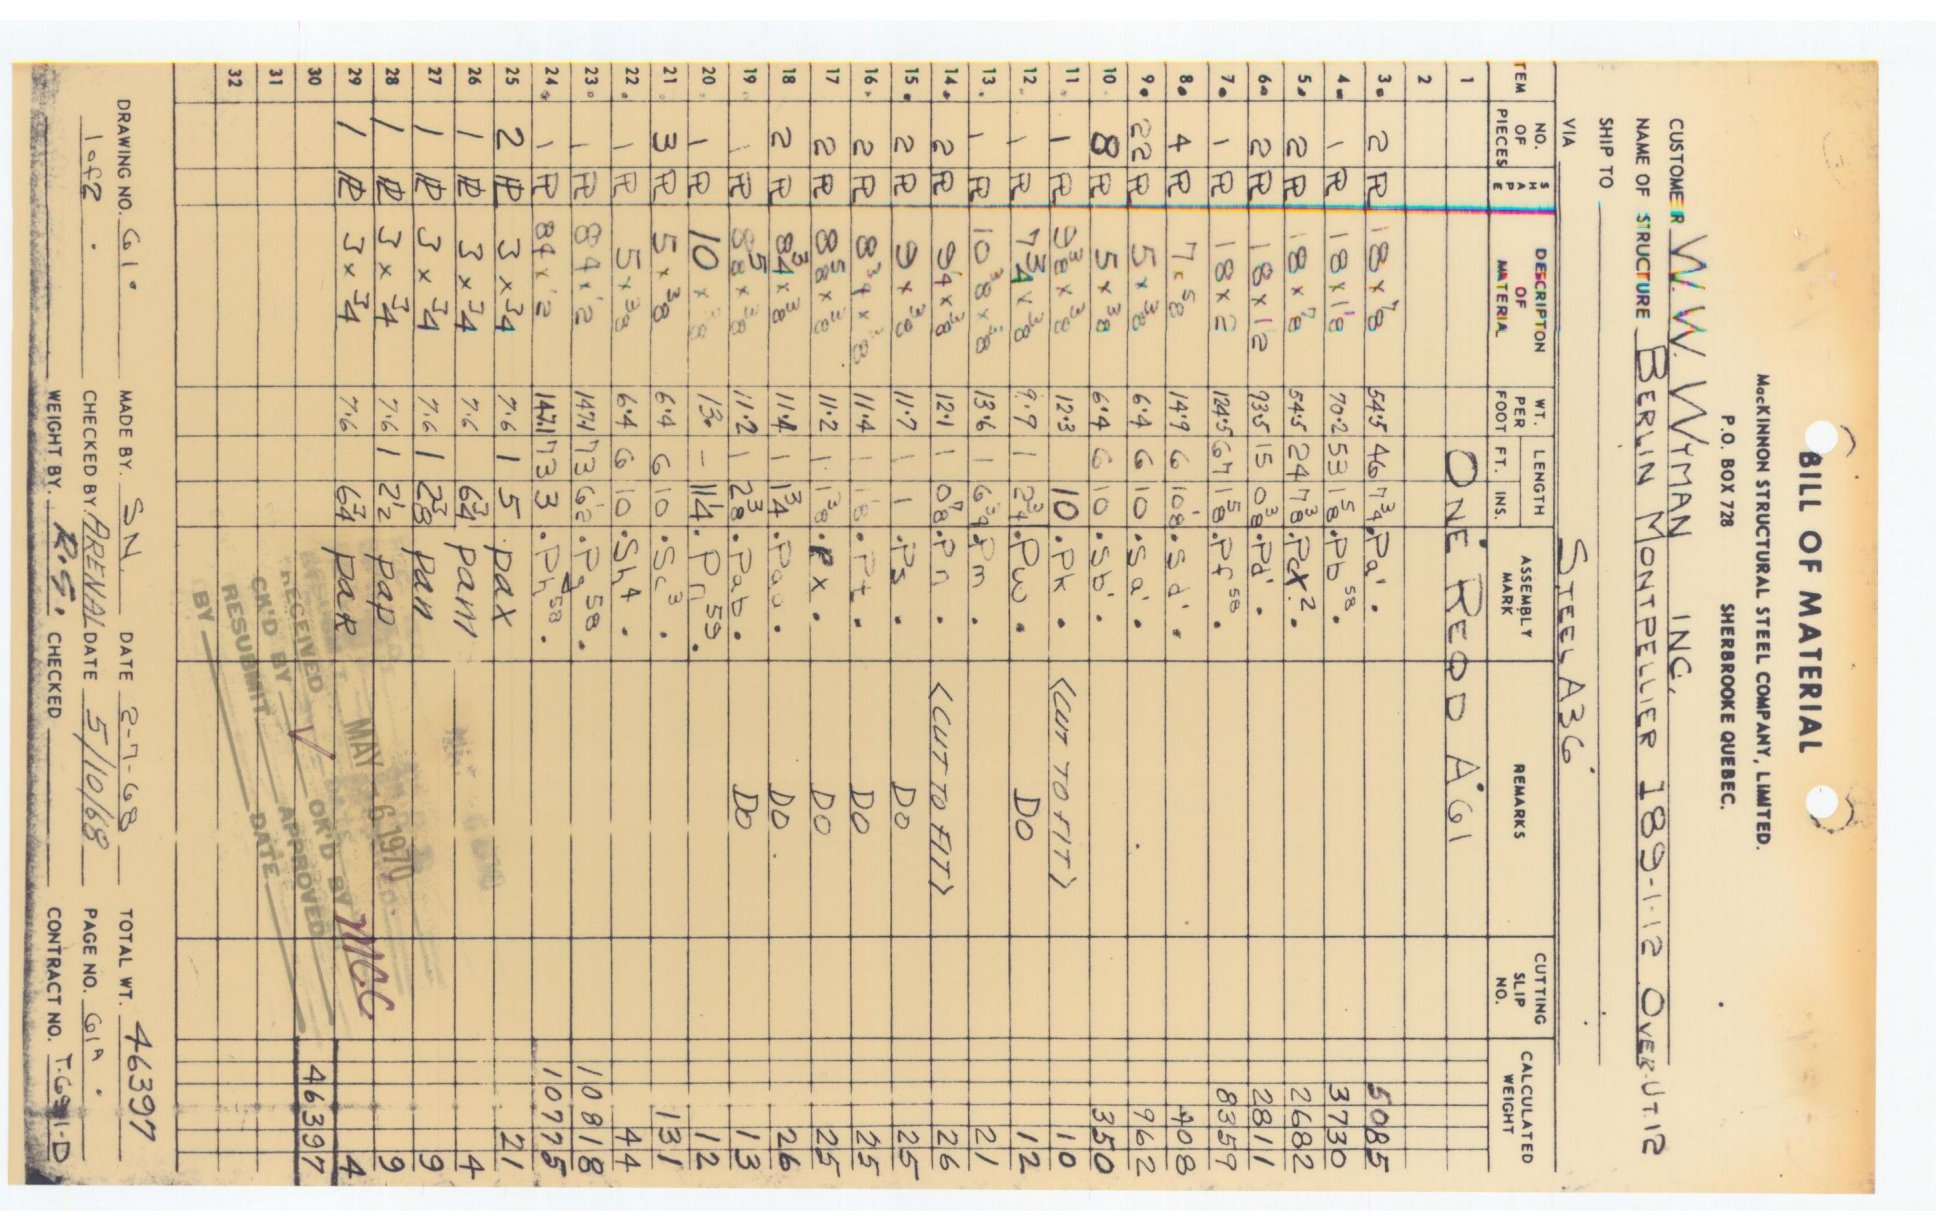 BILL OF MATERIAL
MacKINNON STRUCTURAL STEEL COMPANY, LIMITED.
P.O. BOX 728 SHERBROOKE QUEBEC.
CUSTOMER W. W. WYMAN INC.
NAME OF STRUCTURE BERLIN MONTPELLIER 189-1-12 OVER UT.12
SHIP TO
VIA STEEL A36
ITEM NO. OF PIECES SHAPE DESCRIPTON OF MATERIAL WT. PER FOOT LENGTH FT. INS. ASSEMBLY MARK REMARKS CUTTING SLIP NO. CALCULATED WEIGHT
1 ONE REQD A G1
2
3. 2 PL 18 x 7/8 54.5 46 7 3/4 Pa' 5085
4. 1 PL 18 x 1 1/8 70.2 53 1 5/8 Pb 58 3730
5. 2 PL 18 x 7/8 54.5 24 7 3/8 Pc 2 2682
6. 2 PL 18 x 1 1/2 93.5 15 0 3/8 Pd' 2811
7. 1 PL 18 x 2 124.5 67 1 5/8 Pf 58 8359
8. 4 PL 7 x 5/8 14.9 6 10 1/8 Sd' 408
9. 22 PL 5 x 3/8 6.4 6 10 Sa' 962
10. 8 PL 5 x 3/8 6.4 6 10 Sb' 350
11. 1 PL 9 3/8 x 3/8 12.3 10 Pk <CUT TO FIT> 10
12. 1 PL 7 3/4 x 3/8 9.9 1 2 3/4 Pw DO 12
13. 1 PL 10 3/8 x 3/8 13.6 1 6 3/4 Pm 21
14. 2 PL 9 1/4 x 3/8 12.1 1 0 7/8 Pn <CUT TO FIT> 26
15. 2 PL 9 x 3/8 11.7 1 1 Ps DO 25
16. 2 PL 8 3/4 x 3/8 11.4 1 1 1/8 Pt DO 25
17 2 PL 8 5/8 x 3/8 11.2 1 1 3/8 Px DO 25
18 2 PL 8 3/4 x 3/8 11.4 1 1 3/4 Paa DO 26
19 1 PL 8 5/8 x 3/8 11.2 1 2 3/8 Pab DO 13
20. 1 PL 10 x 3/8 13. - 11 1/4 Pn 59 12
21. 3 PL 5 x 3/8 6.4 6 10 Sc 3 131
22. 1 PL 5 x 3/8 6.4 6 10 Sh 4 44
23. 1 PL 84 x 1/2 147.1 73 6 1/2 Pg 58 10818
24. 1 PL 84 x 1/2 147.1 73 3 Ph 58 10775
25 2 PL 3 x 3/4 7.6 1 5 pax 21
26 1 PL 3 x 3/4 7.6 6 3/4 pam 4
27 1 PL 3 x 3/4 7.6 1 2 3/8 pan 9
28 1 PL 3 x 3/4 7.6 1 2 1/2 pap 9
29 1 PL 3 x 3/4 7.6 6 3/4 paR 4
30 46397
31
32
MAY 6 1970
RECEIVED OK'D BY MCC
CK'D BY APPROVED
RESUBMIT
BY DATE
DRAWING NO. G1 MADE BY. SN. DATE 2-7-68 TOTAL WT. 46397
1 of 2 CHECKED BY ARENAL DATE 5/10/68 PAGE NO. G1A
WEIGHT BY. R.G. CHECKED CONTRACT NO. T-6991-D